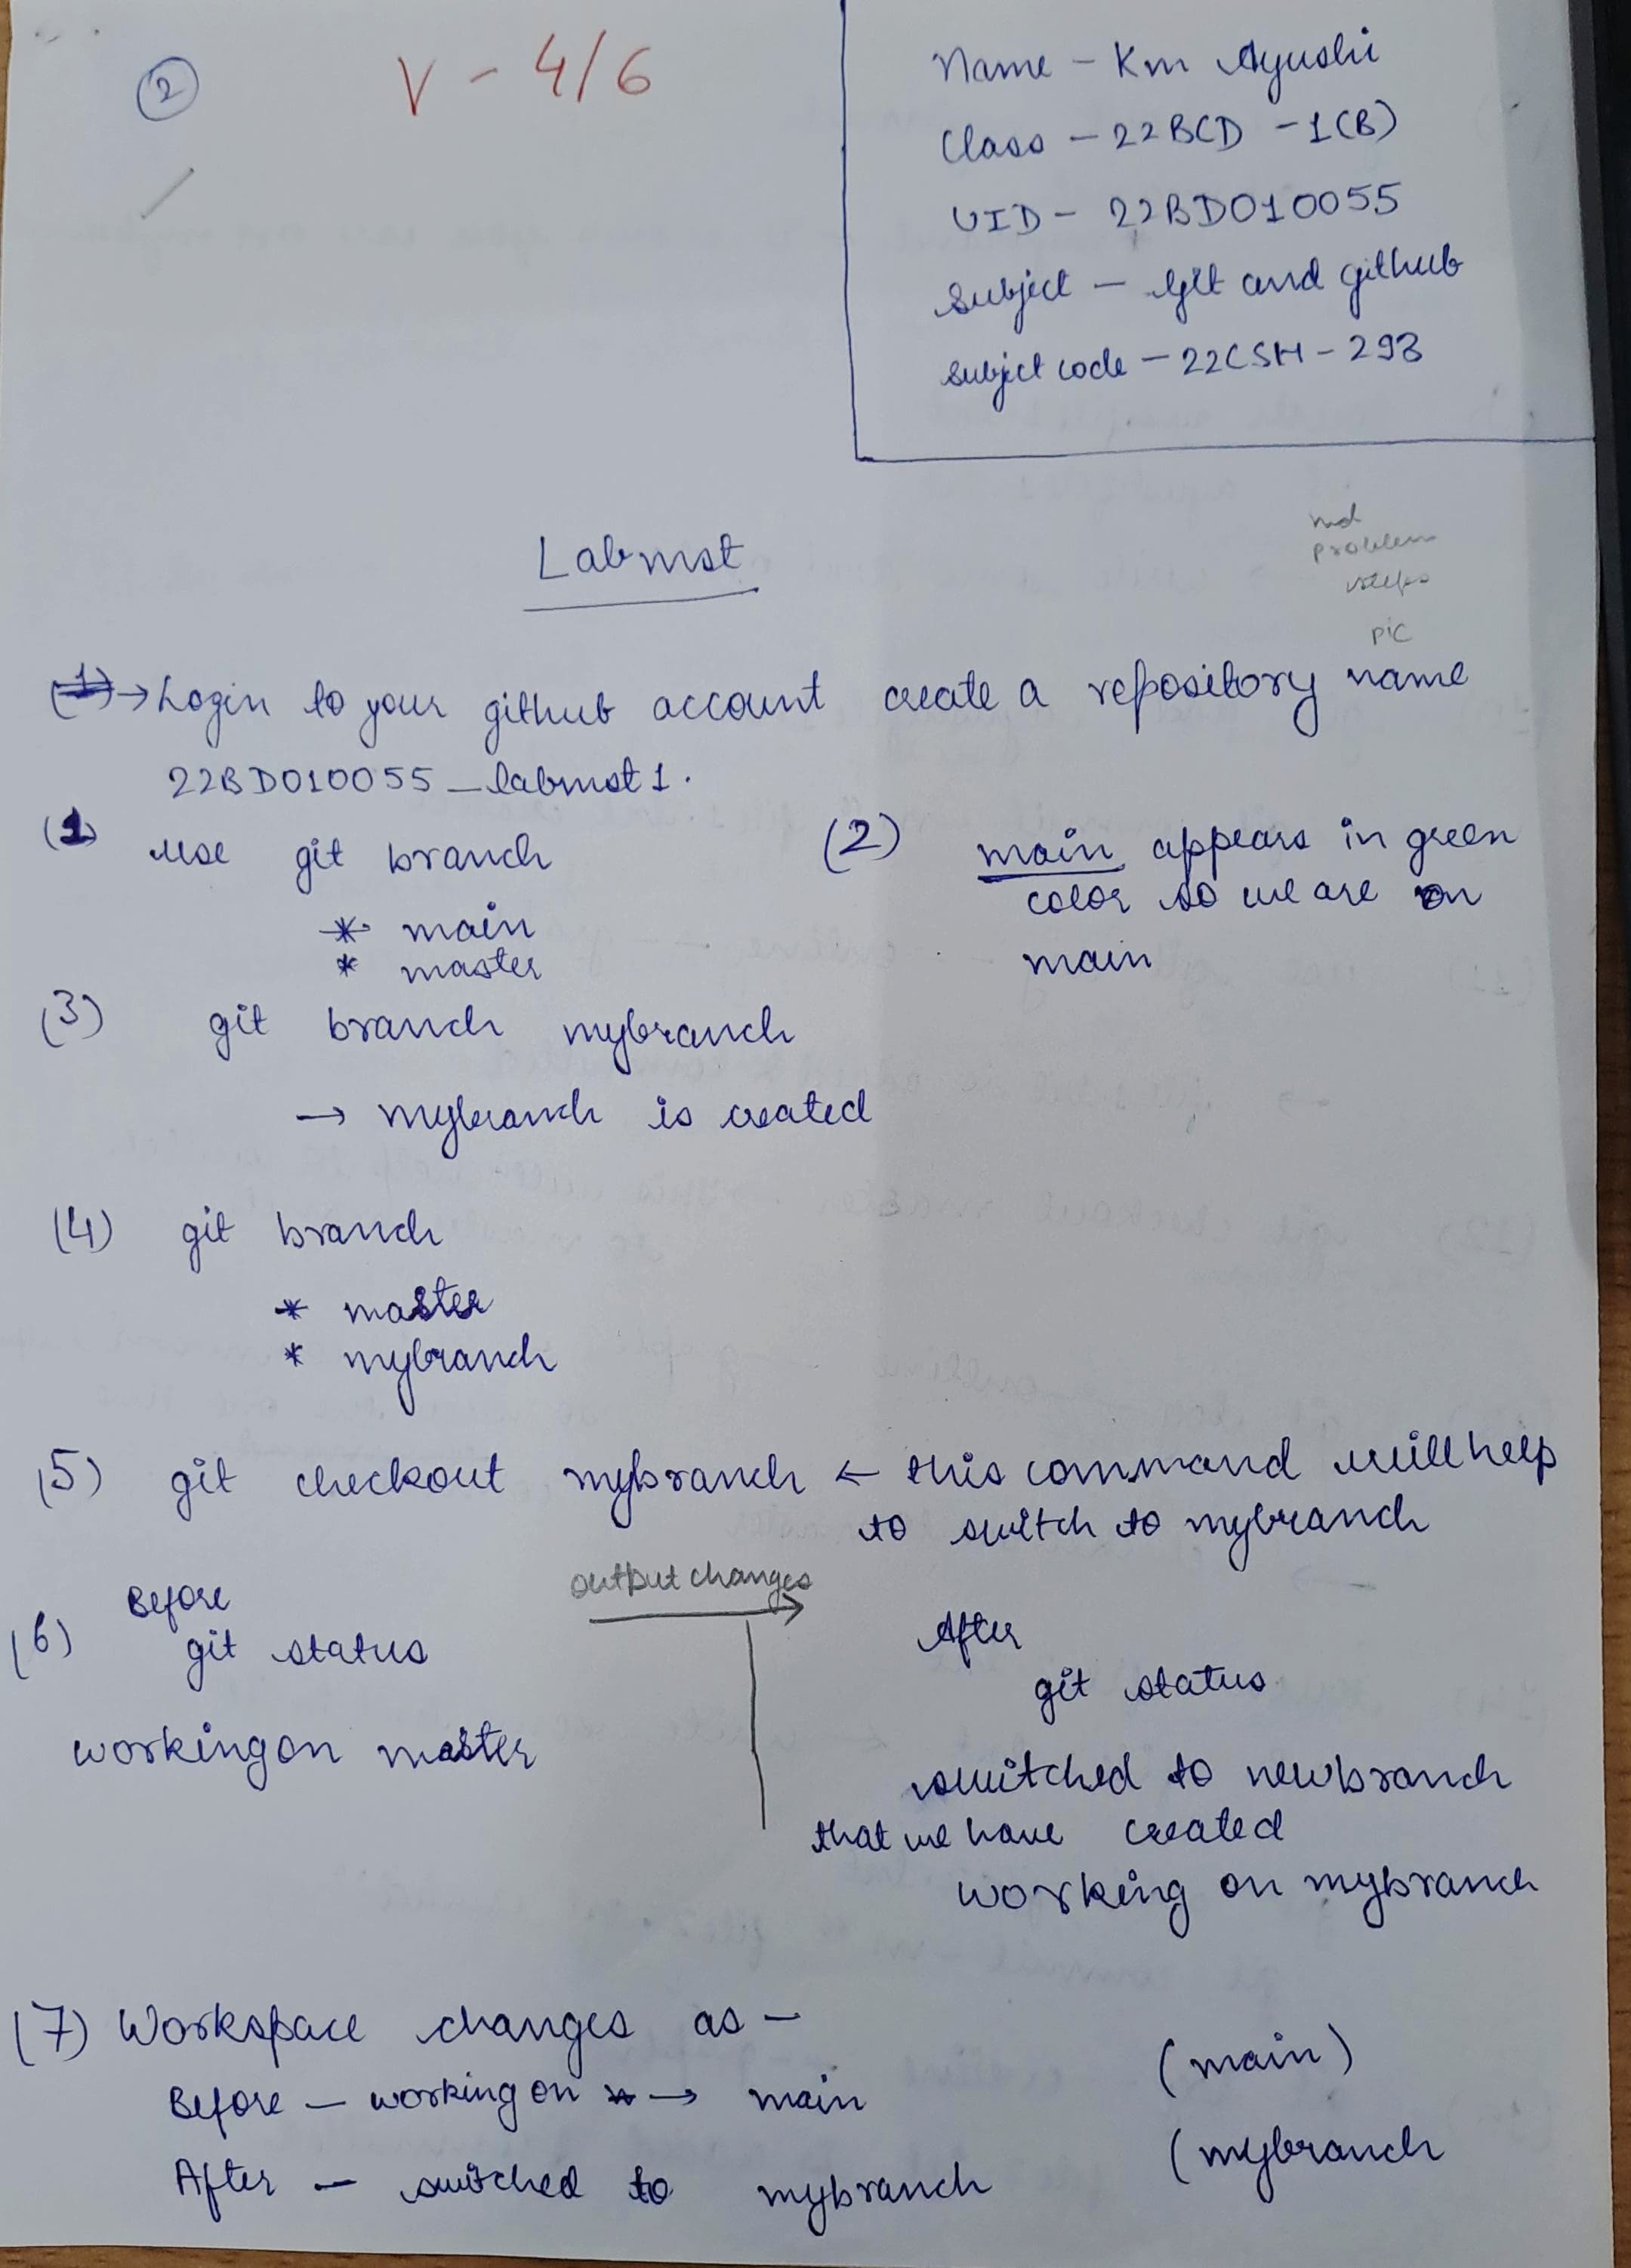 2
V - 4/6
Name - Km Ayushi
Class - 22BCD - 1(B)
UID - 22BD010055
Subject - Git and github
Subject code - 22CSH - 293
Labmst
problem
steps
pic
(1) → Login to your github account create a repository name
22BD010055_labmst1.
(1) Use git branch
* main
* master
(2) main appears in green
color so we are on
main
(3) git branch mybranch
→ mybranch is created
(4) git branch
* master
* mybranch
(5) git checkout mybranch ← this command will help
to switch to mybranch
output changes
(6) Before
git status
working on master
After
git status
switched to newbranch
that we have created
working on mybranch
(7) Workspace changes as -
Before - working on → main (main)
After - switched to mybranch (mybranch